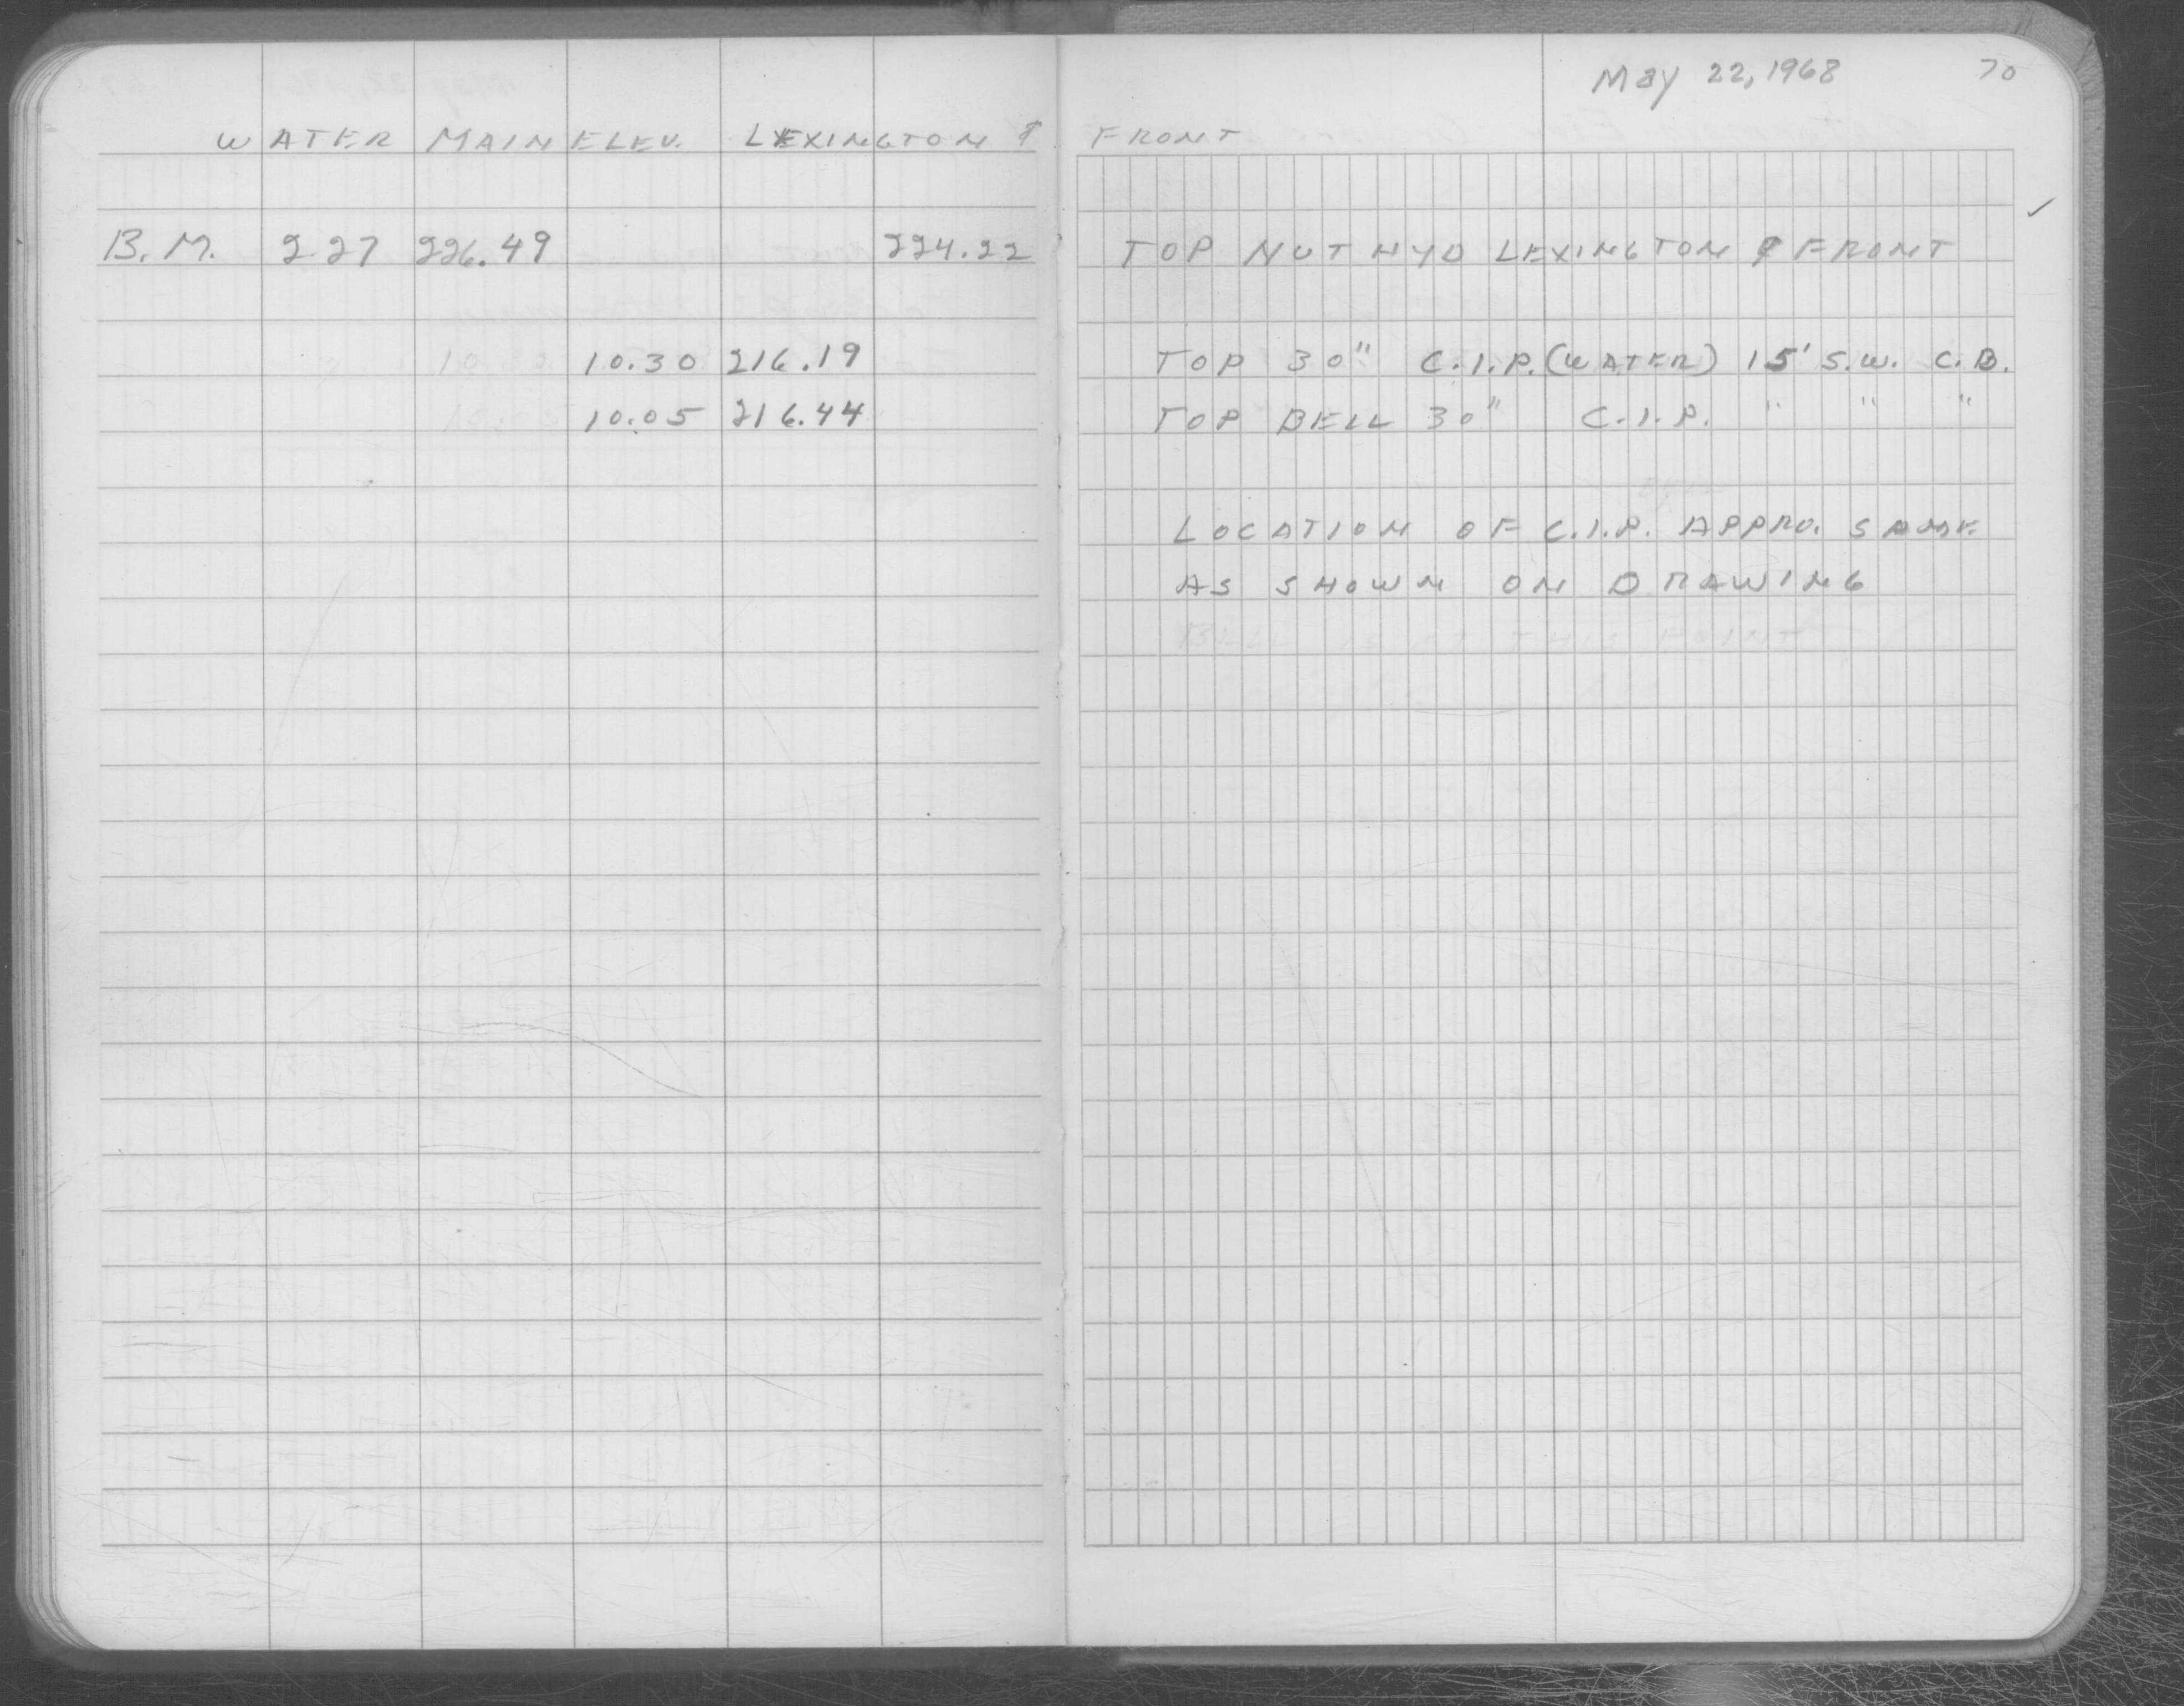 May 22, 1968 70
WATER MAIN ELEV. LEXINGTON & FRONT
B.M. 2.27 226.49 224.22 TOP NUT HYD LEXINGTON & FRONT
10.30 216.19 TOP 30" C.I.P. (WATER) 15' S.W. C.B.
10.05 216.44 TOP BELL 30" C.I.P. " " "
LOCATION OF C.I.P. APPRO. SAME
AS SHOWN ON DRAWING
BELL IS AT THIS POINT